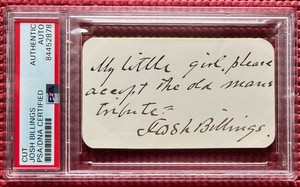 CUT
JOSH BILLINGS
PSA/DNA CERTIFIED
AUTHENTIC
AUTO
84452878
PSA
My little girl, please
accept the old mans
tribute =
Josh Billings.